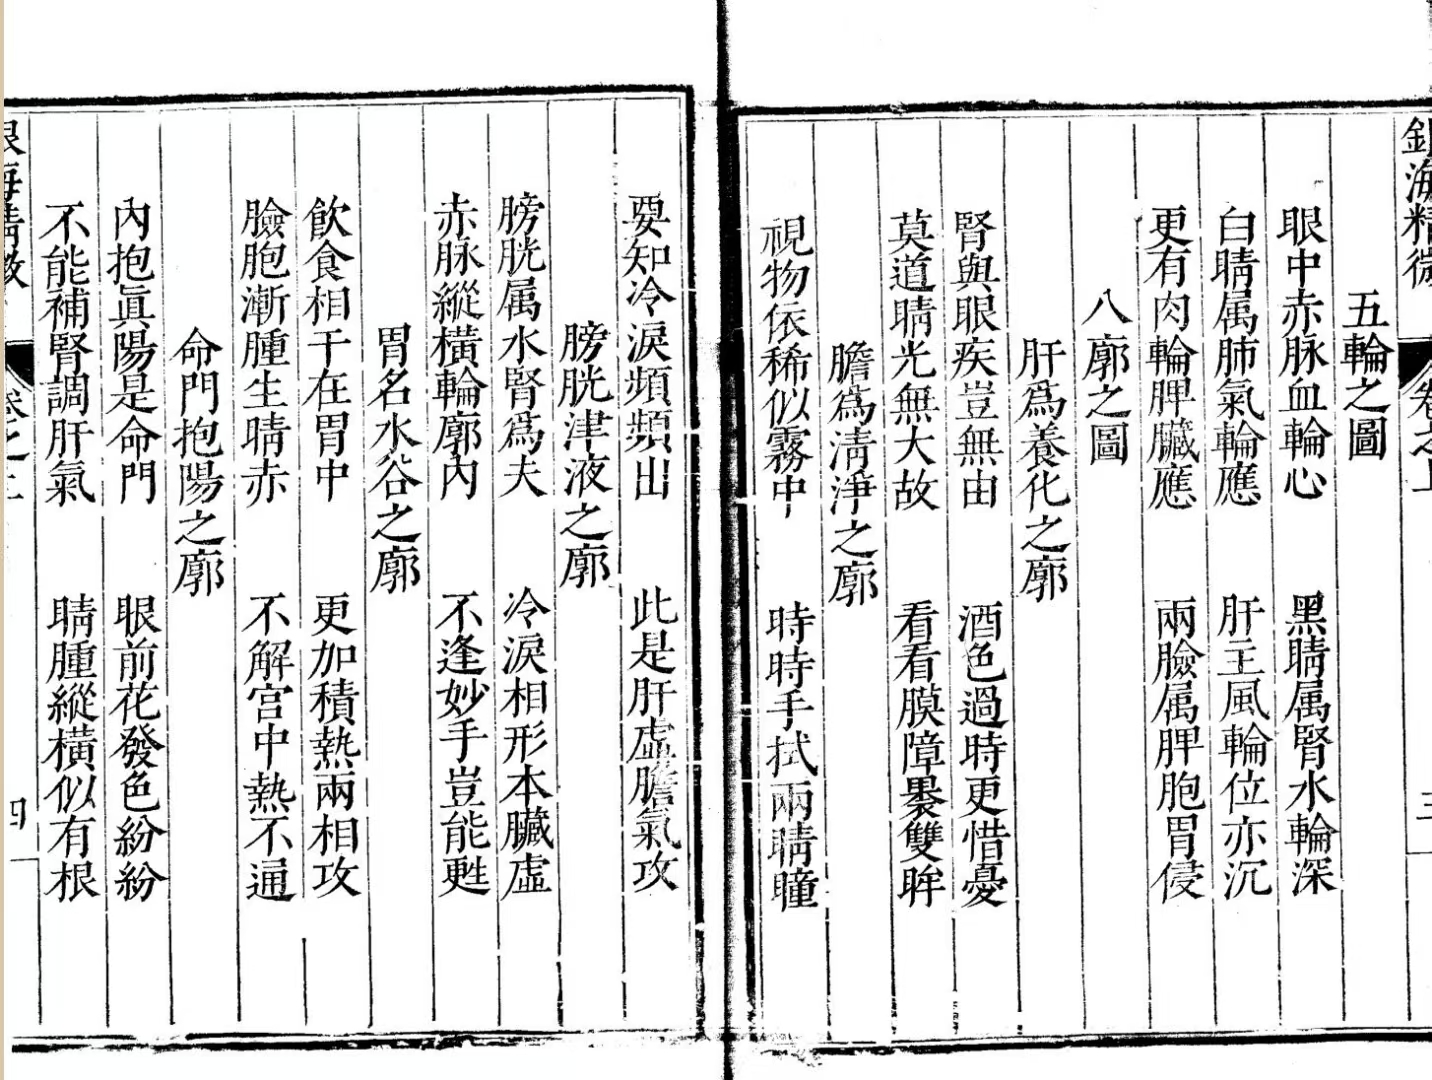 銀海精微 卷之上 三
五輪之圖
眼中赤脉血輪心 黑睛属腎水輪深
白睛属肺氣輪應 肝王風輪位亦沉
更有肉輪脾臟應 兩臉属脾胞胃侵
八廓之圖
肝爲養化之廓
腎與眼疾豈無由 酒色過時更惜憂
莫道睛光無大故 看看膜障裹雙眸
膽爲清淨之廓
視物依稀似霧中 時時手拭兩睛瞳
要知冷淚頻頻出 此是肝虛膽氣攻
膀胱津液之廓
膀胱属水腎爲夫 冷淚相形本臟虛
赤脉縱橫輪廓內 不逢妙手豈能甦
胃名水谷之廓
飲食相干在胃中 更加積熱兩相攻
臉胞漸腫生睛赤 不解宮中熱不通
命門抱陽之廓
內抱眞陽是命門 眼前花發色紛紛
不能補腎調肝氣 睛腫縱橫似有根
銀海精微 卷之上 四